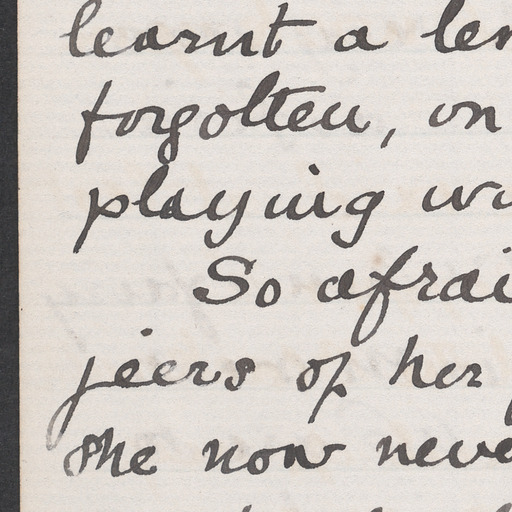 learnt a le
forgotten, on
playing wi
So afrai
jeers of her
she now neve